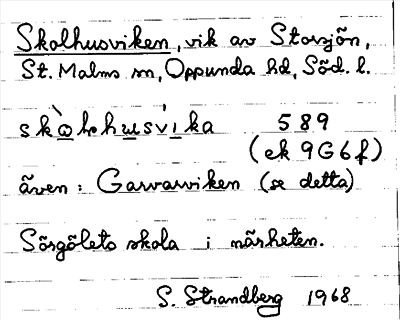 Skolhusviken, vik av Storsjön,
St. Malms sn, Oppunda hd, Söd. l.
skò̲lhu̲svi̲ka 589
(ek 9G6f)
även: Garvarviken (se detta)
Sörgölets skola i närheten.
S. Strandberg 1968